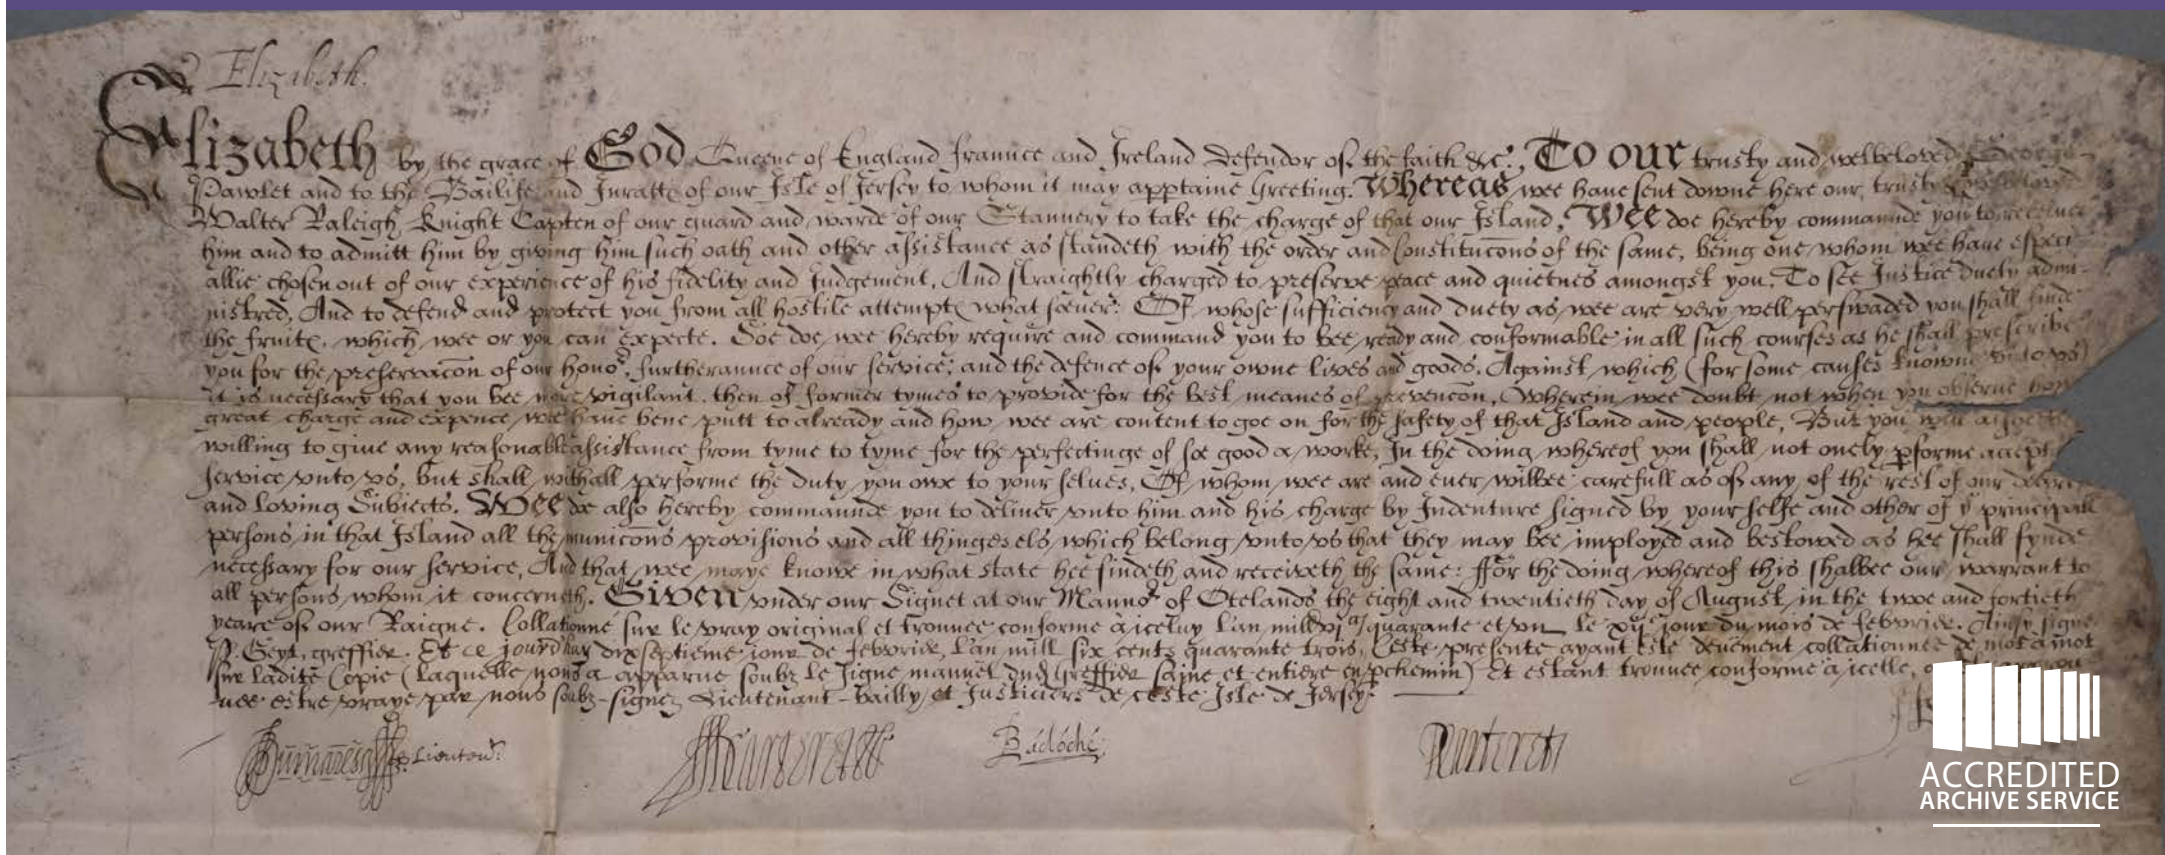 Elizabeth.
Elizabeth by the grace of God Queene of England Fraunce and Ireland Defendor of the faith &c. To our trusty and welbeloved George
Pawlet and to the Bailife and Juratts of our Isle of Jersey to whom it may apptaine Greeting. Whereas wee have sent downe here our trusty
Walter Raleigh Knight Capten of our guard and warde of our Stannery to take the charge of that our Island, Wee doe hereby commaunde you to receive
him and to admitt him by giving him such oath and other assistance as standeth with the order and Constitucons of the same, being one whom wee have especi-
allie chosen out of our experience of his fidelity and Judgement, And straightly charged to preserve peace and quietnes amongst you, To see Justice duely admi-
nistred, And to defend and protect you from all hostile attempts what soever: Of whose sufficiency and duety as wee are very well perswaded you shall finde
the fruits, which wee or you can expecte. Soe doe wee hereby require and command you to bee ready and conformable in all such courses as he shall prescribe
you for the preservacon of our honor, furtheraunce of our service, and the defence of your owne lives and goods. Against which (for some causes knowne unto us)
it is necessary that you bee more vigilant then of former tymes to provide for the best means of prevencon, Wherein wee doubt not when you observe how
great charge and expence wee have bene putt to already and how wee are content to goe on for the safety of that Island and people, But you will
willing to give any reasonable assistance from tyme to tyme for the perfectinge of soe good a worke, In the doing whereof you shall not onely pforme
service unto us, but shall withall performe the duty you owe to your selves, Of whom wee are and ever wilbee carefull as of any of the rest of our deare
and loving Subiects. Wee doe also hereby commaunde you to deliver unto him and his charge by Indenture signed by your selfe and other of ye principall
persons in that Island all the municons provisions and all thinges els which belong unto us that they may bee imployed and bestowed as hee shall fynde
necessary for our service, And that wee maye knowe in what state hee findeth and receiveth the same: ffor the doing whereof this shalbee our warrant to
all persons whom it concerneth. Given under our Signet at our Mannor of Otelands the eight and twentieth day of August in the twoe and fortieth
yeare of our Raigne. Collationne sur le vray original et trouvee conforme à iceluy l'an mill vi quarante et un le xij jour du mois de febvrier. Ainsy signe
P. Seyt, greffier. Et ce jourd'huy dixseptieme jour de febvrier, l'an mill six cents quarante trois, Ceste presente ayant este deuement collationnee de mot à mot
sur ladite Copie (laquelle nous a apparue soubz le signe manuel dud Greffier saine et entiere en pchemin) Et estant trouvee conforme à icelle,
nee estre vraye par nous soubz-signez Lieutenant-bailly, et Justiciers de ceste Isle de Jersey.
Dumaresq Lieuten
Badoché
ACCREDITED
ARCHIVE SERVICE